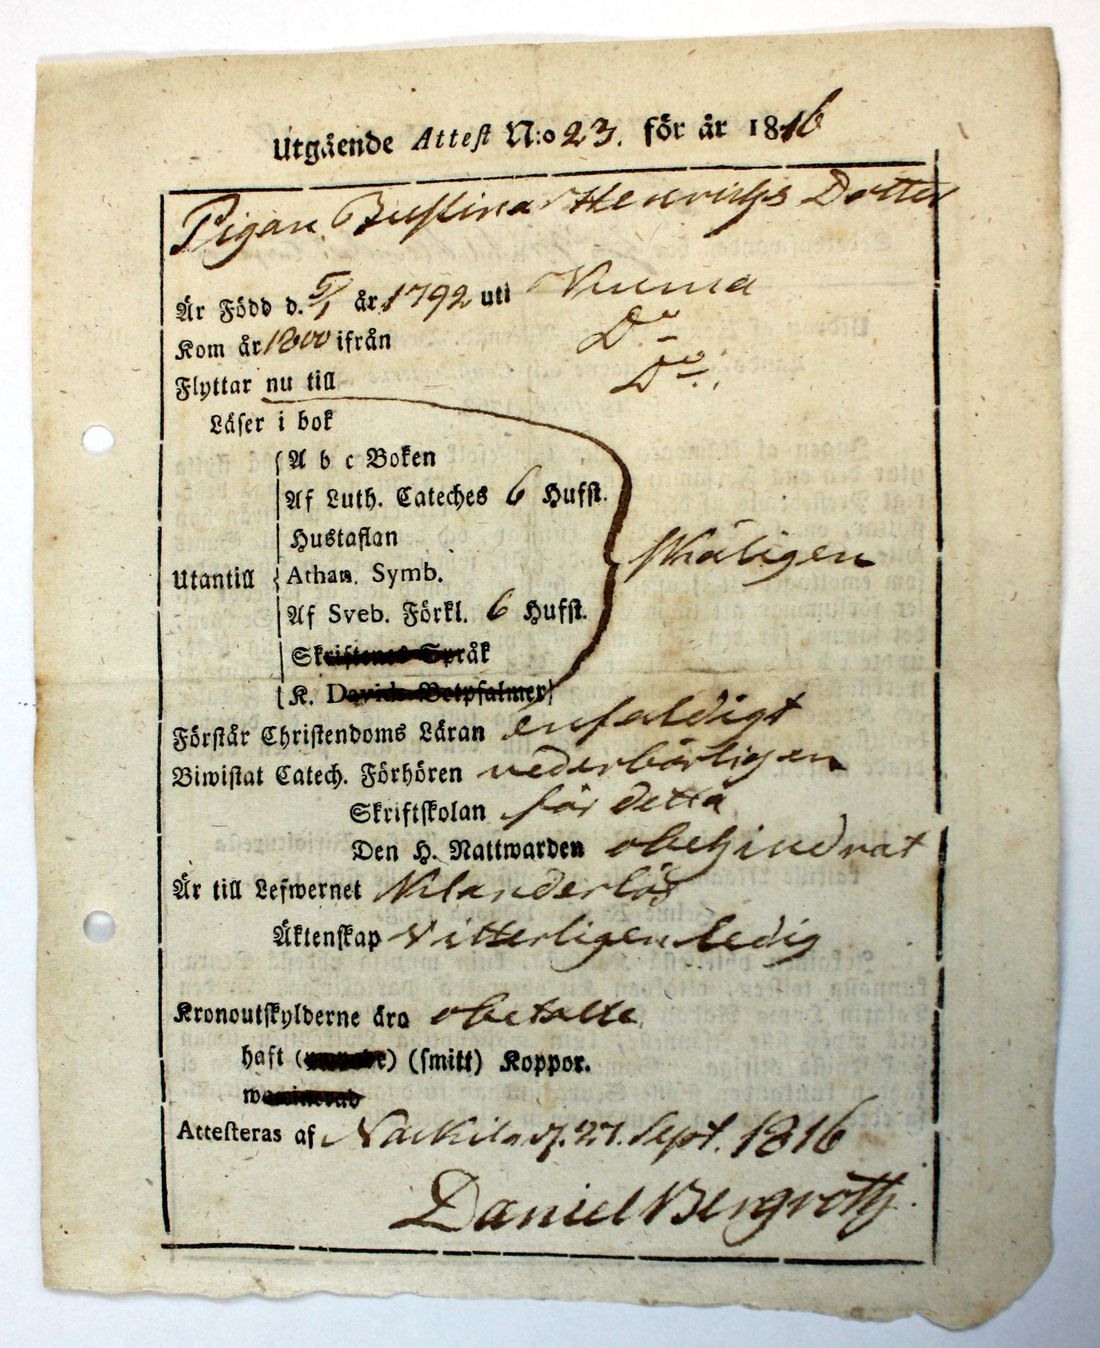 Utgående Attest N:o 23. för år 1816
Pigan Justina Henrichs Dotter
Är Född d. 5/1 år 1792 uti
Kom år 1800 ifrån D:o
Flyttar nu till D:o
Läser i bok
A b c Boken
Af Luth. Cateches 6 Hufst.
Hustaflan
Utantill Athan. Symb. skäligen
Af Sveb. Förkl. 6 Hufst.
Skriftenes Språk
K. Davids Botpsalmer
Förstår Christendoms Läran enfaldigt
Biwistat Catech. Förhören vederbörligen
Skriftskolan för detta
Den H. Nattwarden obehindrat
Är till Lefwernet klanderlös
Äktenskap vitterligen ledig
Kronoutskylderne äro obetalte
haft (smitt) Koppor.
Attesteras af Nackila d. 27. Sept. 1816
Daniel Bergroth